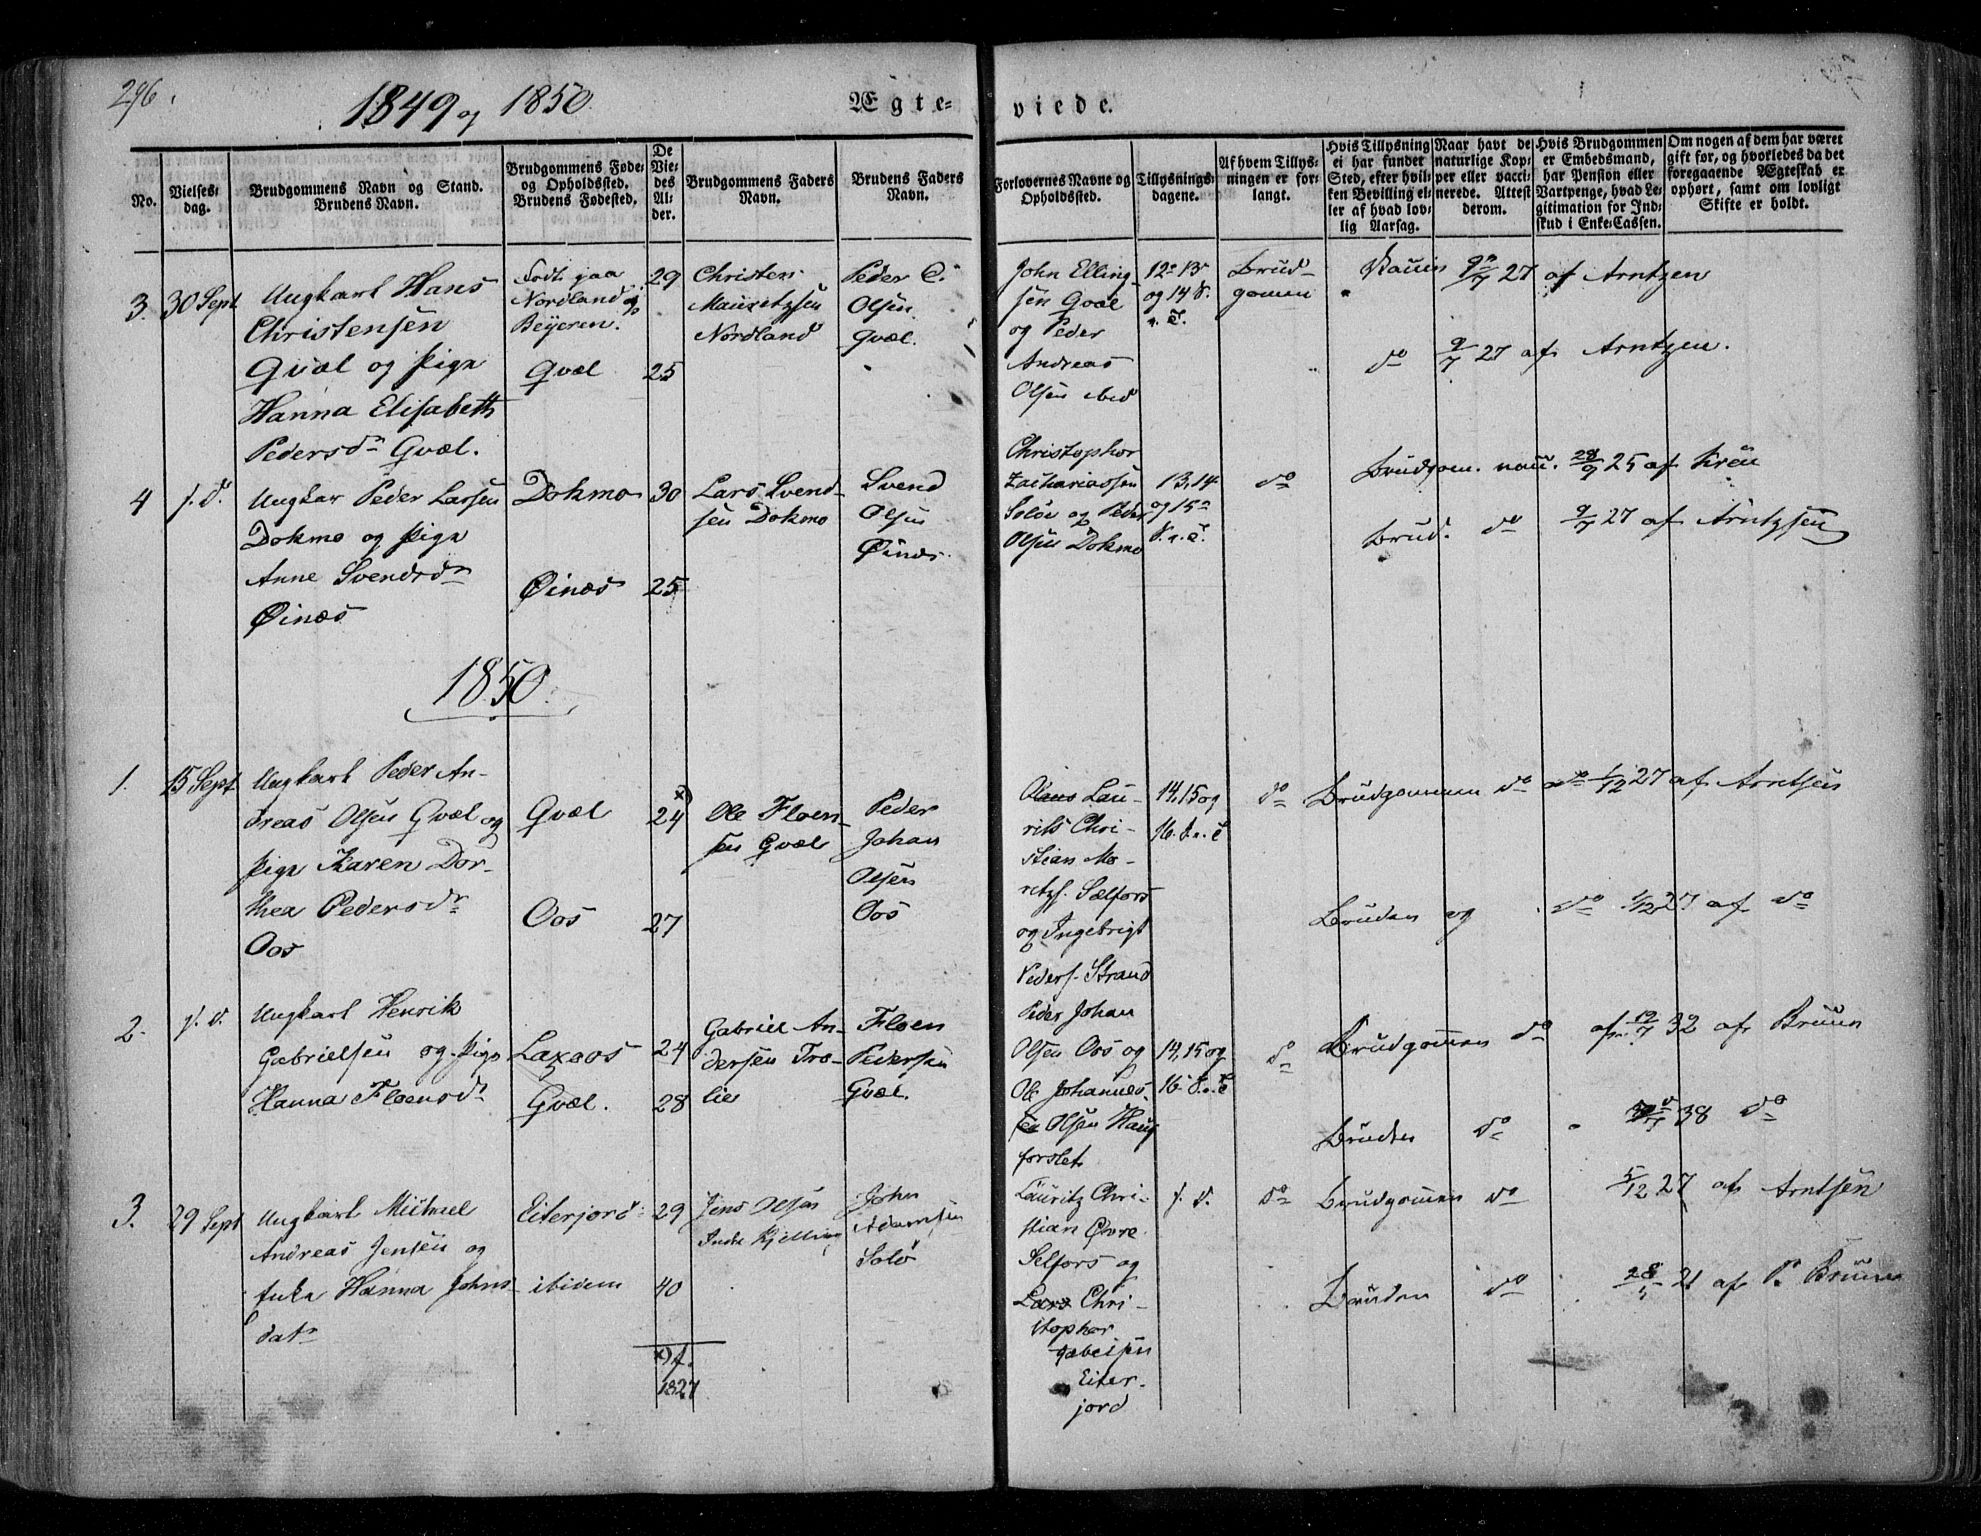 296.
1849 og 1850.
Ægte-
viede.
No.
Vielses-
dag.
Brudgommens Navn og Stand.
Brudens Navn.
Brudgommens Føde-
og Opholdssted.
Brudens Fødested.
De
Vie-
des
Al-
der.
Brudgommens Faders
Navn.
Brudens Faders
Navn.
Forlovernes Navne og
Opholdssted.
Tillysnings-
dagene.
Af hvem Tillys-
ningen er for-
langt.
Hvis Tillysning
ei har fundet
Sted, efter hvil-
ken Bevilling el-
ler af hvad lov-
lig Aarsag.
Naar havt de
naturlige Kop-
per eller vacci-
nerede. Attest
derom.
Hvis Brudgommen
er Embedsmand,
har Pension eller
Vartpenge, hvad Le-
gitimation for Ind-
skud i Enke-Cassen.
Om nogen af dem har været
gift før, og hvorledes da det
foregaaende Ægteskab er
ophørt, samt om lovligt
Skifte er holdt.
3.
30 Sept
Ungkarl Hans
Christensen
Qvæl og Pige
Hanna Elisabeth
Pedersdr Qvæl.
Født paa
Nordland og
Beijeren.
Qvæl
29
25
Christen
Mauritzsen
Nordland
Peder C.
Olsen
Qvæl.
John Elling-
sen Qvæl
og Peder
Andreas
Olsen ibid
12- 13
og 14 S.
e. T.
Brud-
gomen
Vaccin 9/7 27 af Arntzen
do 9/7 27 af Arntzen.
4
s. d.
Ungkar Peder Larsen
Dokmo og Pige
Anne Svendsdr
Øinæs
Dokmo
Øinæs
30
25
Lars Svend-
sen Dokmo
Svend
Olsen
Øinæs.
Christopher
Zachariassen
Soløe og Peder
Olsen Dokmo
13, 14
og 15
S. e. T.
do
Brudgom. vacc. 28/9 25 af
Brud. do 9/7 27 af Arntzsen
1850.
1.
15 Sept
Ungkarl Peder An-
dreas Olsen Qvæl og
Pige Karen Dor-
thea Pedersdr
Oos
Qvæl
Oos
24 x)
27
Ole Floen-
sen Qvæl
Peder
Johan
Olsen
Oos
Olaus Lau-
rits Chri-
stian Mo-
ritzs. Sælfors
og Ingebrigt
Peders. Strand
14, 15 og
16. S. e. T
do
Brudgommen do do 1/12 27 af Arntsen
Bruden og do 1/12 27 af do
2.
s. d.
Ungkarl Henrik
Gabrielsen og Pige
Hanna Floensdr
Laxaos
Qvæl.
24
28
Gabriel An-
dersen Træ-
lie
Floen
Pedersen
Qvæl.
Peder Johan
Olsen Oos og
Ole Johannes-
sen Olsen Haug
forslet
14, 15 og
16. S. e. T
do
Brudgommen do af 12/7 32 af Bruun
Bruden do 38 do
3.
29 Sept
Ungkarl Michael
Andreas Jensen og
Enke Hanna Johns-
datr
Eiterjord
ibidem
29
40
Jens Olsen
Indre Kjelling
John
Adamsen
Solø
Lauritz Chri-
stian Øvre
Selfors og
Lars Chri-
stopher
Eiter-
jord
s. d.
do
Brudgommen do 5/12 27 af Arntsen
Bruden do 28/5 21 af P. Bruun
x) f.
1827